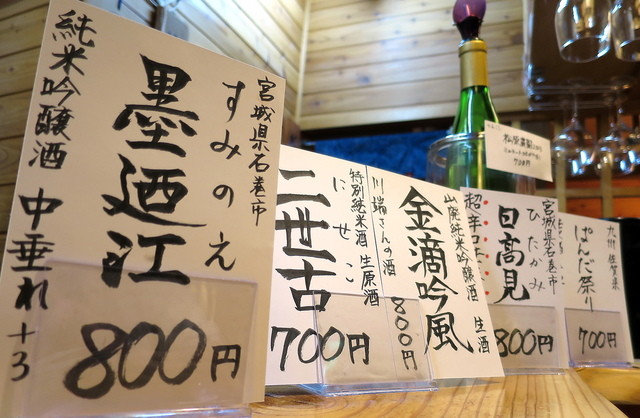 宮城県石巻市
すみのえ
墨廼江
純米吟醸酒 中垂れ +3
800円
二世古
にせこ
特別純米酒 生原酒
700円
川端さんの酒
金滴吟風
山廃純米吟醸酒 生酒
800円
超辛口
宮城県石巻市
ひたかみ
日高見
800円
九州 佐賀県
ぱんだ祭り
700円
700円